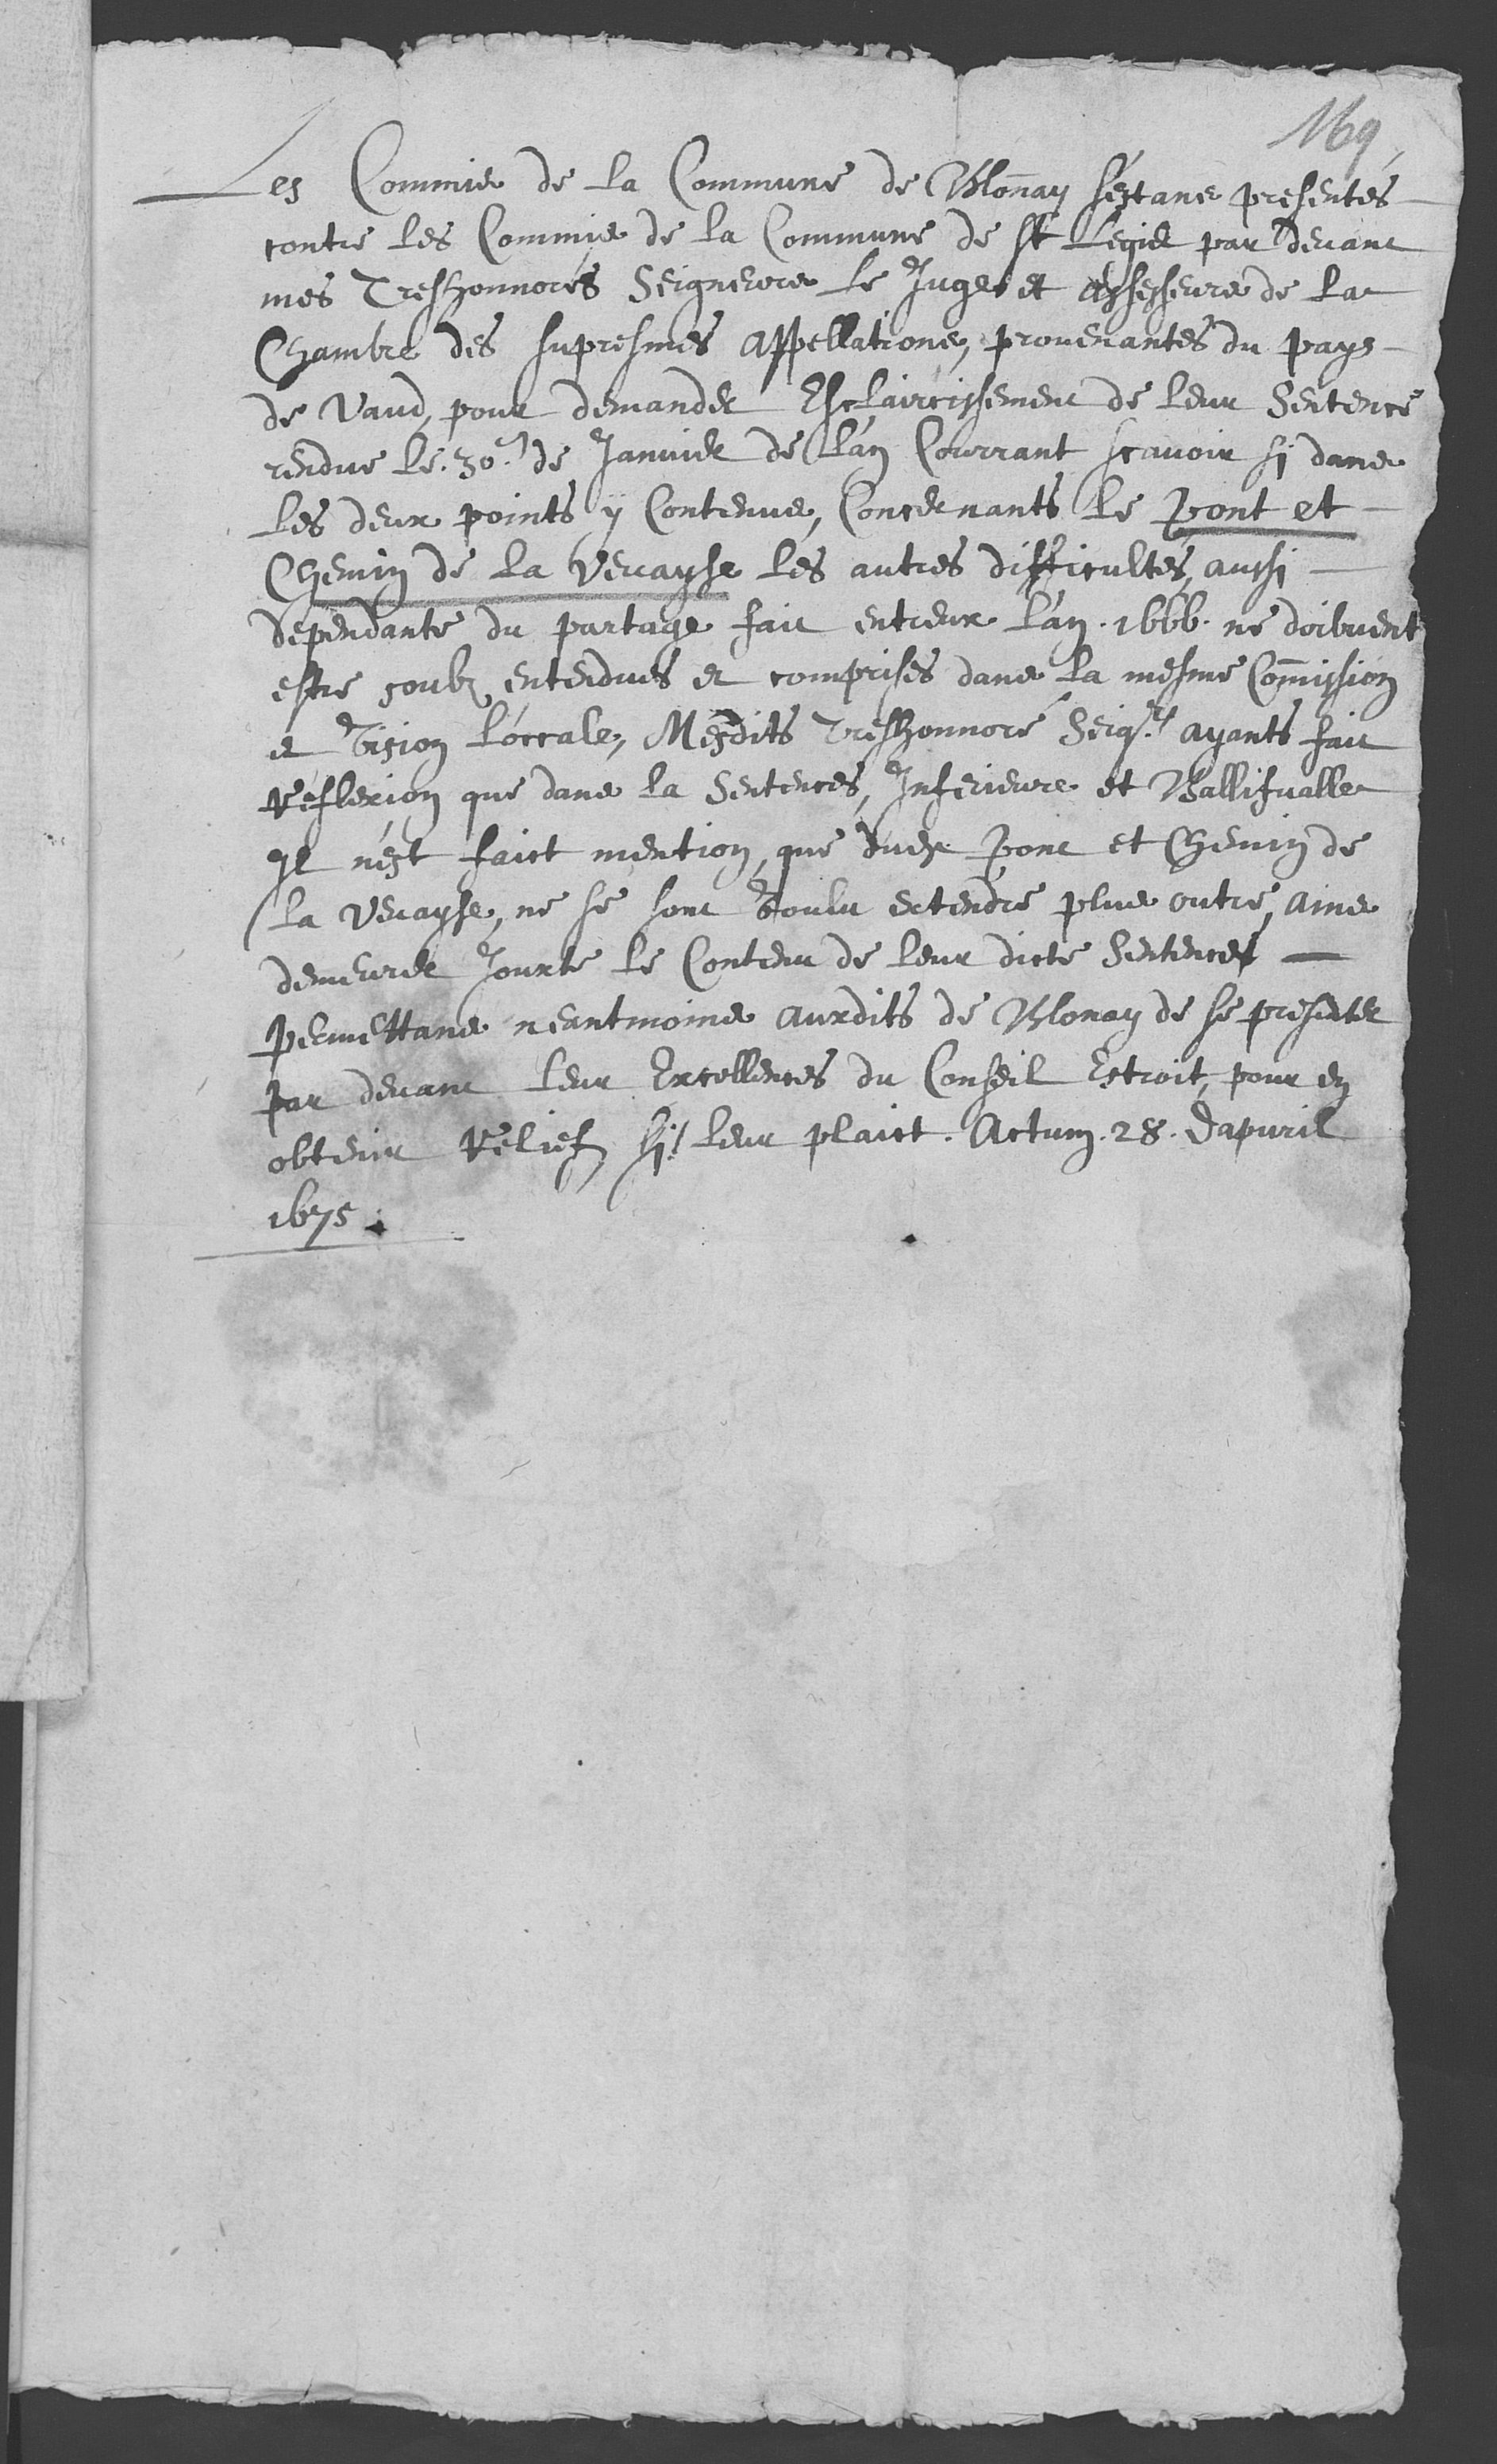 169
Les Commis de la Commune de Blonay s'estans presentés
contre les Commis de la Commune de St Legier par devant
mes Treshonnorés Seigneurs le Juge et Assesseurs de la
Chambre des supresmes Appellations, provenantes du pays
de Vaud, pour demander Esclaircissement de leur Sentence
rendue le. 30.e de Janvier de l'an Courrant scavoir si dans
les deux points y Contenus, Concernants le pont et
Chemin de la Vevayse les autres difficultés, aussi
dependants du partage fait entreux l'an. 1666. ne doibvent
estre soubz entendues et comprises dans la mesme Com̄ission
et Vision Loccale, Mesdits treshonnoré Seigrs ayants fait
Reflexion que dans la Sentences, Inferieure et Ballifvalle
Il n'est faict mention, que du pont et Chemin de
la Vevayse, ne se sont voulu extendre plus outre, ains
demeurer Jouxte le Contenu de leur dicte Sentence
permettans neantmoins auxdits de Blonay de se presenter
par devant leur Excellences du Conseil Estroit, pour en
obtenir Relief, si leur plaict. Actum. 28. d'apvril
1675.